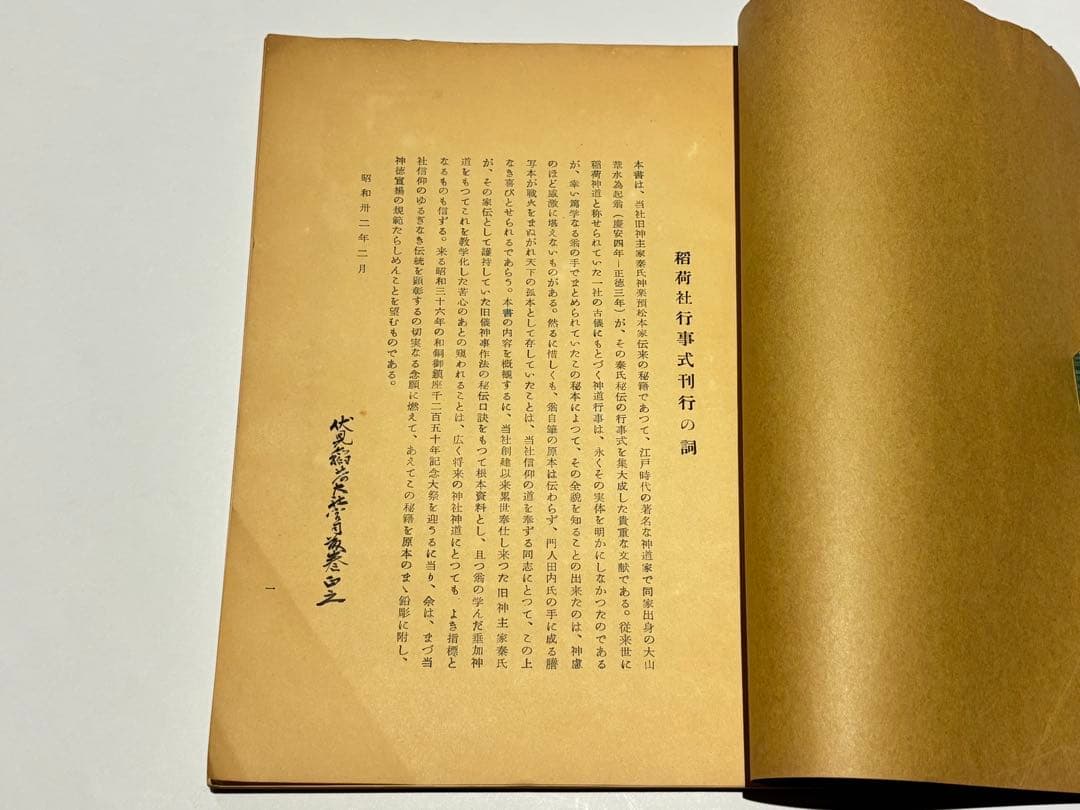 稲荷社行事式刊行の詞
本書は、当社旧神主家秦氏神楽預松本家伝来の秘籍であつて、江戸時代の著名な神道家で同家出身の大山
葦水為起翁(慶安四年―正徳三年)が、その秦氏秘伝の行事式を集大成した貴重な文献である。従来世に
稲荷神道と称せられていた一社の古儀にもとづく神道行事は、永くその実体を明かにしなかつたのである
が、幸い篤学なる翁の手でまとめられていたこの秘本によつて、その全貌を知ることの出来たのは、神慮
のほど感激に堪えないものがある。然るに惜しくも、翁自筆の原本は伝わらず、門人田内氏の手に成る謄
写本が戦火をまぬがれ天下の孤本として存していたことは、当社信仰の道を奉ずる同志にとつて、この上
なき喜びとせられるであらう。本書の内容を概観するに、当社創建以来累世奉仕し来つた旧神主家秦氏
が、その家伝として護持していた旧儀神事作法の秘伝口訣をもつて根本資料とし、且つ翁の学んだ垂加神
道をもつてこれを教学化した苦心のあとの窺われることは、広く将来の神社神道にとつても、よき指標と
なるものも信ずる。来る昭和三十六年の和銅御鎮座千二百五十年記念大祭を迎うるに当り、余は、まづ当
社信仰のゆるぎなき伝統を顕彰するの切実なる念願に燃えて、あえてこの秘籍を原本のまゝ鉛彫に附し、
神徳宣揚の規範たらしめんことを望むものである。
昭和卅二年二月
伏見稲荷大社宮司 鈴巻正之
一